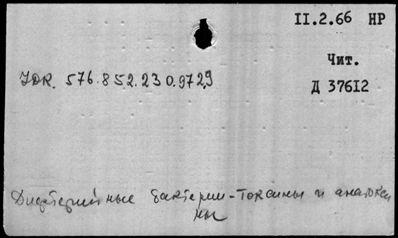 II.2.66 НР
Чит.
Д 37612
УДК. 576.852.230.9729
Дифтерийные бактерии - токсины и анатокси
ны